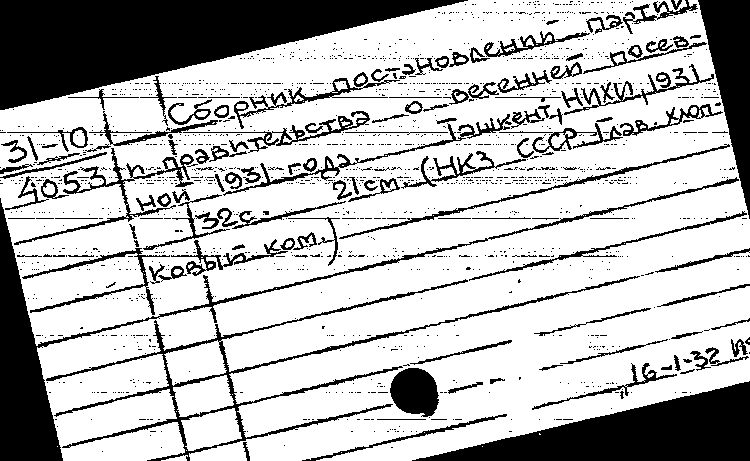 Сборник постановлений партии
31-10
4053
и правительства о весенней посев-
ной 1931 года. Ташкент, НИХИ, 1931
32с. 21см. (НКЗ СССР. Глав. хлоп-
ковый ком.)
16-1-32